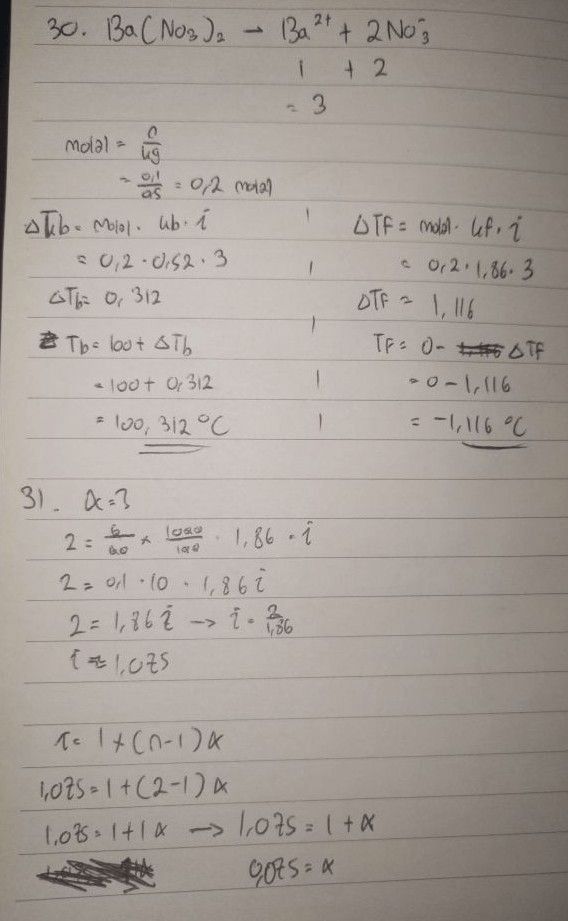 30. Ba(NO3)2 → Ba²⁺ + 2NO3⁻
1 + 2
= 3
molal = n/kg
= 0,1/0,5 = 0,2 molal
ΔTb = molal. kb. i
= 0,2 . 0,52 . 3
ΔTb = 0,312
Tb = 100 + ΔTb
= 100 + 0,312
= 100,312 °C
ΔTF = molal. kf. i
= 0,2 . 1,86 . 3
ΔTF = 1,116
TF = 0 - ΔTF
= 0 - 1,116
= -1,116 °C
31. α = ?
2 = 6/60 × 1000/100 . 1,86 . i
2 = 0,1 . 10 . 1,86 i
2 = 1,86 i → i = 2/1,86
i ≈ 1,075
i = 1 + (n-1) α
1,075 = 1 + (2-1) α
1,075 = 1 + 1 α → 1,075 = 1 + α
0,075 = α